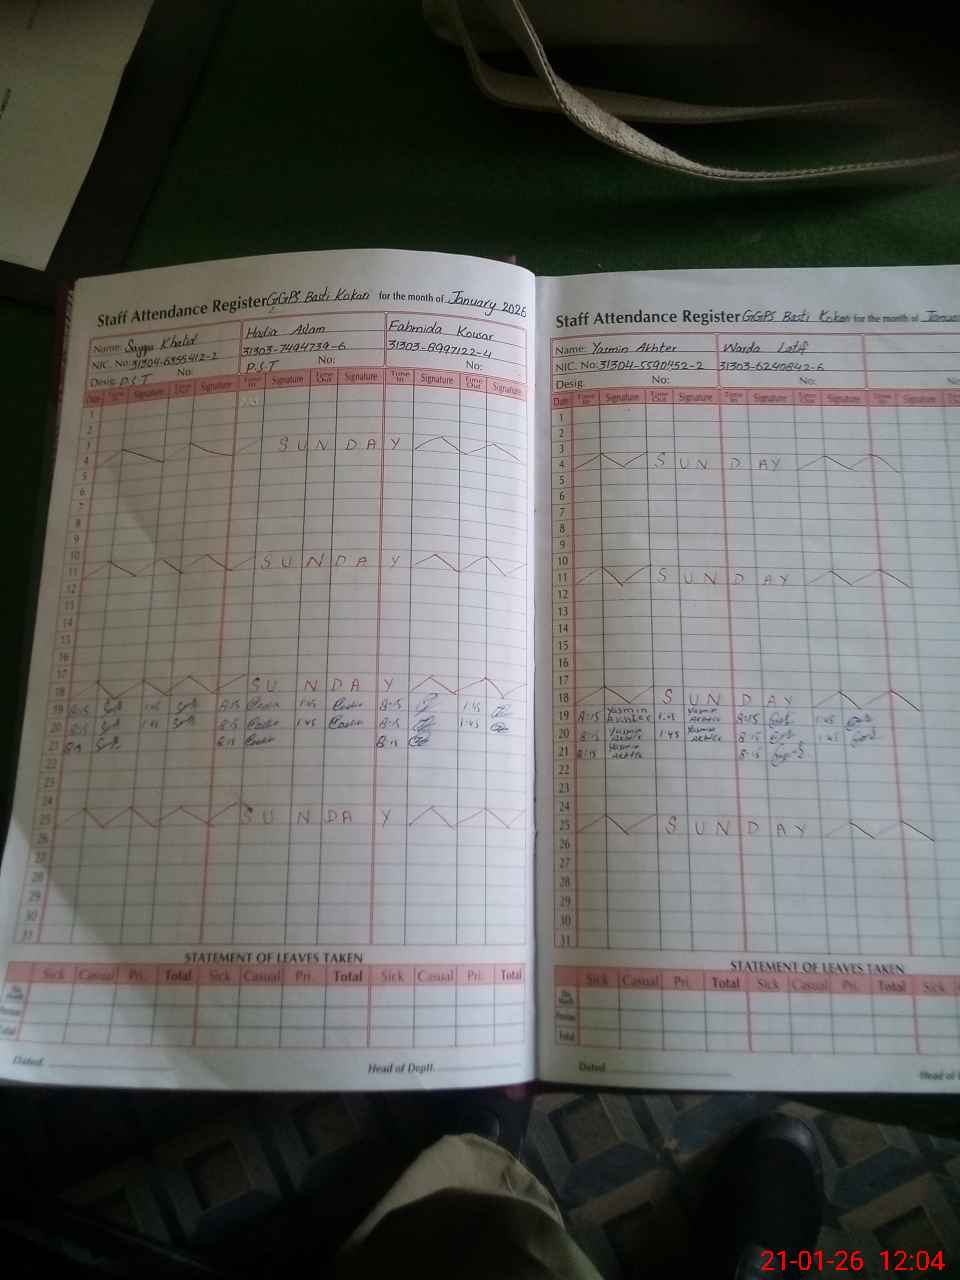 Staff Attendance Register GGPS Basti Kokan for the month of January 2026
Name: Sayya Khalid Hadia Adam Fahmida Kousar
NIC. No: 31304-6355412-2 31303-7494739-6 31303-8997122-4
Desig: P.S.T No: P.S.T No: No:
Date Time In Signature Time Out Signature Time In Signature Time Out Signature Time In Signature Time Out Signature
1
2
3
4 SUNDAY
5
6
7
8
9
10
11 SUNDAY
12
13
14
15
16
17
18 SUNDAY
19 8:15 1:45 8:15 1:45 8:15 1:45
20 8:15 1:45 8:15 1:45 8:15 1:45
21 8:15 8:15 8:15
22
23
24
25 SUNDAY
26
27
28
29
30
31
STATEMENT OF LEAVES TAKEN
Sick Casual Pri. Total Sick Casual Pri. Total Sick Casual Pri. Total
This Month
Previous
Total
Dated Head of Deptt.
Staff Attendance Register GGPS Basti Kokan for the month of
Name: Yasmin Akhter Warda Latif
NIC. No: 31304-5590452-2 31303-6240842-6
Desig. No: No:
Date Time In Signature Time Out Signature Time In Signature Time Out Signature Time In Signature Time Out Signature
1
2
3
4 SUNDAY
5
6
7
8
9
10
11 SUNDAY
12
13
14
15
16
17
18 SUNDAY
19 8:15 Yasmin Akhter 1:45 Yasmin Akhter 8:15 1:45
20 8:15 Yasmin Akhter 1:45 Yasmin Akhter 8:15 1:45
21 8:15 Yasmin Akhter 8:15
22
23
24
25 SUNDAY
26
27
28
29
30
31
STATEMENT OF LEAVES TAKEN
Sick Casual Pri. Total Sick Casual Pri. Total Sick
This Month
Previous
Total
Dated Head of
21-01-26 12:04